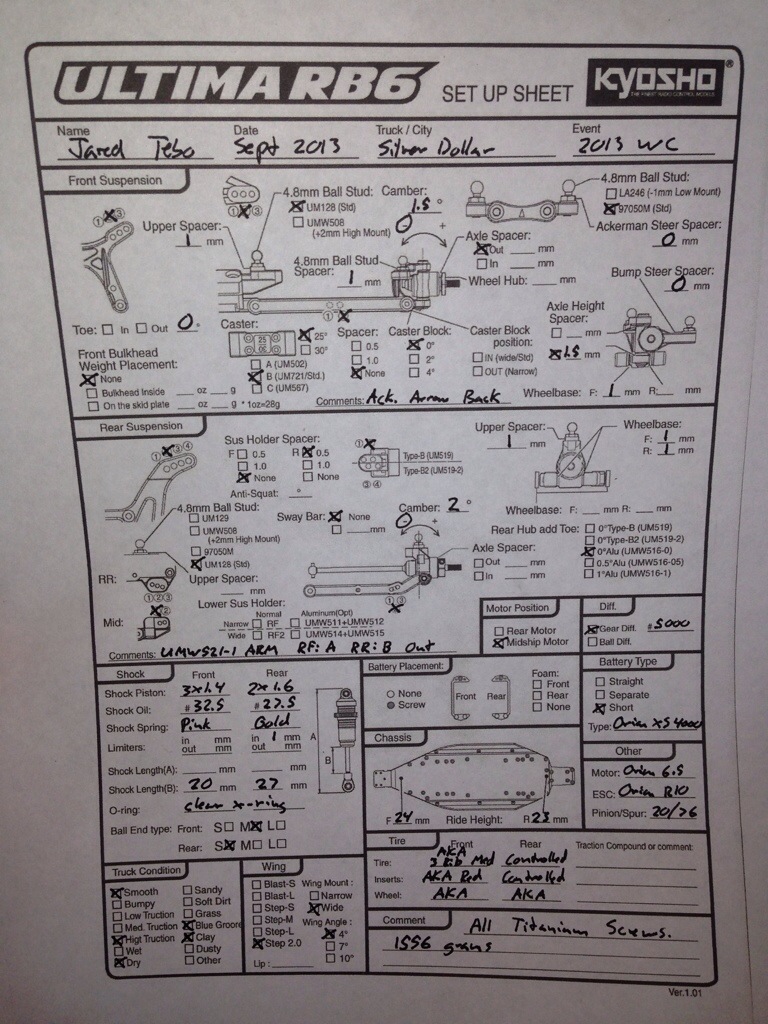 ULTIMA RB6 SET UP SHEET KYOSHO ®
THE FINEST RADIO CONTROL MODELS
Name Date Truck / City Event
Jared Tebo Sept 2013 Silver Dollar 2013 WC
Front Suspension
4.8mm Ball Stud: Camber: 1.5 °
UM128 (Std)
UMW508
(+2mm High Mount)
0
4.8mm Ball Stud:
LA246 (-1mm Low Mount)
97050M (Std)
Ackerman Steer Spacer:
0 mm
Upper Spacer:
1 mm
4.8mm Ball Stud
Spacer: 1 mm
Axle Spacer:
Out mm
In mm
Wheel Hub: mm
Bump Steer Spacer:
0 mm
Toe: In Out 0 °
Caster:
25°
30°
Spacer:
0.5
1.0
None
Caster Block:
0°
2°
4°
Caster Block
position:
IN (wide/Std)
OUT (Narrow)
Axle Height
Spacer:
mm
1.5 mm
Front Bulkhead
Weight Placement:
None
Bulkhead Inside oz g
On the skid plate oz g * 1oz=28g
A (UM502)
B (UM721/Std.)
C (UM567)
Wheelbase: F: 1 mm R: mm
Comments: Ack. Arrow Back
Rear Suspension
Sus Holder Spacer:
F 0.5 R 0.5
1.0 1.0
None None
Anti-Squat: °
Type-B (UM519)
Type-B2 (UM519-2)
Upper Spacer:
1 mm
Wheelbase:
F: 1 mm
R: 1 mm
4.8mm Ball Stud:
UM129
UMW508
(+2mm High Mount)
97050M
UM128 (Std)
Sway Bar: None
mm
Camber: 2 °
0
Wheelbase: F: mm R: mm
Rear Hub add Toe:
0°Type-B (UM519)
0°Type-B2 (UM519-2)
0°Alu (UMW516-0)
0.5°Alu (UMW516-05)
1°Alu (UMW516-1)
Axle Spacer:
Out mm
In mm
RR:
Upper Spacer:
mm
Mid:
Lower Sus Holder:
Normal Aluminum(Opt)
Narrow RF UMW511+UMW512
Wide RF2 UMW514+UMW515
Comments: UMW521-1 ARM RF: A RR: B Out
Motor Position
Rear Motor
Midship Motor
Diff.
Gear Diff. #5000
Ball Diff.
Shock Front Rear
Shock Piston: 3x1.4 2x1.6
Shock Oil: #32.5 #27.5
Shock Spring: Pink Gold
Limiters: in mm in 1 mm
out mm out mm
Shock Length(A): mm mm
Shock Length(B): 20 mm 27 mm
O-ring: clear x-ring
Ball End type: Front: S M L
Rear: S M L
A
B
Battery Placement:
None
Screw
Front Rear
Foam:
Front
Rear
None
Battery Type
Straight
Separate
Short
Type: Orion XS 4000
Chassis
F 24 mm Ride Height: R 23 mm
Other
Motor: Orion 6.5
ESC: Orion R10
Pinion/Spur: 20/76
Tire Front Rear Traction Compound or comment:
Tire: AKA 3 Rib Med Controlled
Inserts: AKA Red Controlled
Wheel: AKA AKA
Truck Condition
Smooth Sandy
Bumpy Soft Dirt
Low Truction Grass
Med. Truction Blue Groove
Higt Truction Clay
Wet Dusty
Dry Other
Wing
Blast-S Wing Mount :
Blast-L Narrow
Step-S Wide
Step-M Wing Angle :
Step-L 4°
Step 2.0 7°
Lip : 10°
Comment All Titanium Screws.
1556 grams
Ver.1.01